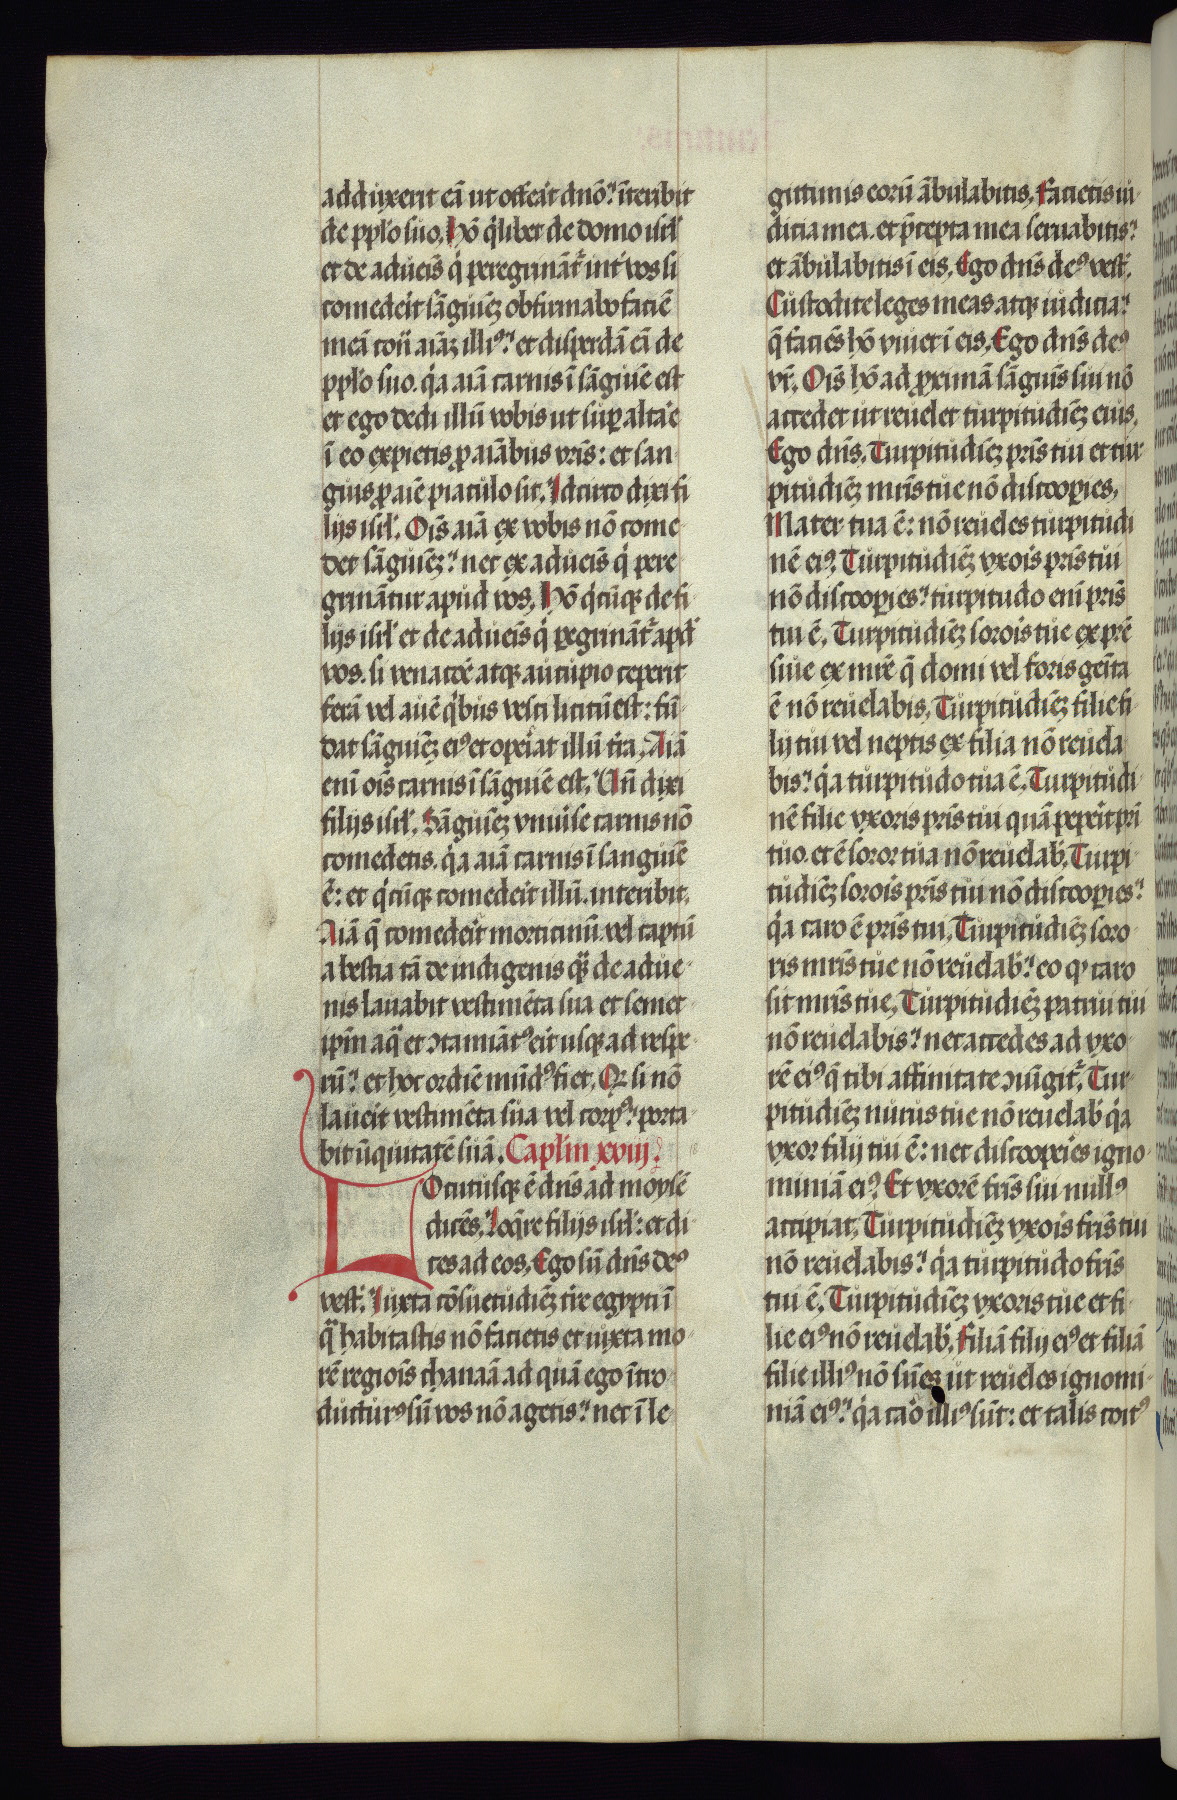 adduxerit eā ut offerat dnō: īteribit
de pp̄lo suo. Hō q̄libet de domo isrl̄
et de adueīs q̇ peregrinant̄ int̄ vos si
comederit sāguinē obfirmabo faciē
meā cont̄ aiāz illiꝰ: et disperdā eā de
pp̄lo suo. q̇a aiā carnis ī sāguīe est
et ego dedi illū vobis ut sup̄ altar̄e
ī eo expietis ꝓ aiābus vr̄is: et san
guis ꝓ aīe piaculo sit. Idcirco dixi fi
lijs isrl̄. Oīs aiā ex vobis nō come
det sāguinēz: nec ex adueīs q̇ pere
grinātur apud vos. Hō q̇cūqꝫ de fi
lijs isrl̄ et de adueīs q̇ ꝑegrinant̄ apd̄
vos. si venatōe atqꝫ aucupio ceperit
ferā vel auē q̇bus vesci licitū est: fū
dat sāguinēz eiꝰ et operiat illū t̄ra. Aiā
enī oīs carnis ī sāguīe est. Vn̄ dixi
filijs isrl̄. Sāguinēz vniūse carnis nō
comedetis. q̇a aiā carnis ī sanguīe
ē: et q̇cūqꝫ comederit illū. interibit.
Aiā q̄ comederit morticinū vel captū
a bestia tā de indigenis qȝ̄ de adue
nis lauabit vestimēta sua et semet
ip̄m aq̄ et ↄtaminatꝰ erit usqꝫ ad vespe
rū: et hoc ordīe mūdꝰ fiet. Qꝛ si nō
lauerit vestimēta sua vel corpꝰ: porta
bit īiquitatē suā. Caplm̄ xviij.
LOcutusqꝫ ē dn̄s ad moysē
dicēs. Loq̄re filijs isrl̄: et di
ces ad eos. Ego sū dn̄s deꝰ
vest̄. Iuxta cōsuetudinēz t̄re egypti ī
q̄ habitastis nō facietis et iuxta mo
rē regiōis chanaā ad quā ego ītro
ducturꝰ sū vos nō agetis: nec ī le
gittimis eorū ābulabitis. Facietis iu
dicia mea. et p̄cepta mea seruabitis:
et ābulabitis ī eis. Ego dn̄s deꝰ vest̄.
Custodite leges meas atqꝫ iudicia:
q̄ faciēs hō viuet ī eis. Ego dn̄s deꝰ
vr̄. Oīs hō ad ꝓximā sāguīs sui nō
accedet ut reuelet turpitudinēz eius.
Ego dn̄s. Turpitudinēz pr̄is tui et tur
pitudinēz mr̄is tue nō discooꝑies.
Mater tua ē: nō reueles turpitudi
nē eiꝰ. Turpitudinēz vxoīs pr̄is tui
nō discooꝑies: turpitudo enī pr̄is
tui ē. Turpitudinēz soroīs tue ex pr̄e
siue ex mr̄e q̄ domi vel foris genīta
ē nō reuelabis. Turpitudinēz filie fi
lij tui vel neptis ex filia nō reuela
bis: q̇a turpitudo tua ē. Turpitudi
nē filie vxoris pr̄is tui quā peperit pr̄i
tuo. et ē soror tua nō reuelab̄. Turpi
tudinēz soroīs pr̄is tui nō discooꝑies:
q̇a caro ē pr̄is tui. Turpitudinēz soro
ris mr̄is tue nō reuelab̄: eo qꝙ caro
sit mr̄is tue. Turpitudinēz patrui tui
nō reuelabis: nec accedes ad vxo
rē eiꝰ q̄ tibi affinitate ↄiūgit̄. Tur
pitudinēz nurus tue nō reuelab̄ q̇a
vxor filij tui ē: nec discooꝑies igno
miniā eiꝰ. Et vxorē fr̄is sui nullꝰ
accipiat. Turpitudinēz vxoīs fr̄is tui
nō reuelabis: q̇a turpitudo fr̄is
tui ē. Turpitudinēz vxoris tue et fi
lie eiꝰ nō reuelab̄. Filiā filij eiꝰ et filiā
filie illiꝰ nō sūes ut reueles ignomi
niā eiꝰ: q̇a caro illiꝰ sūt: et talis coitꝰ